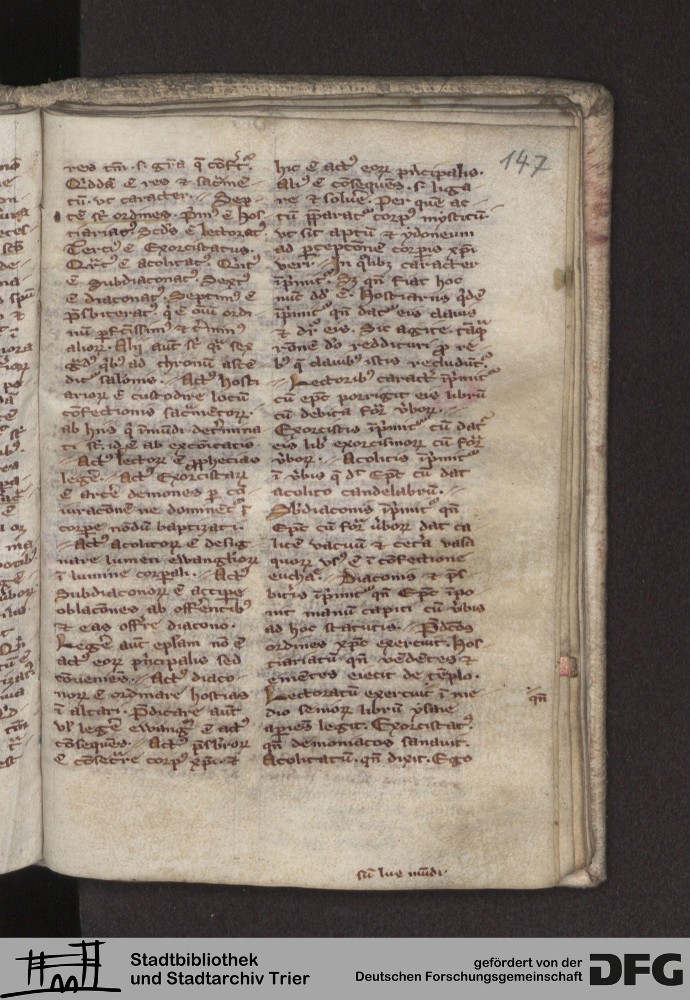 147
res tm̄. s. gr̄a q̄ cōfert᷑.
Q̇ddā ē res et sacr̄mē
tū. vt caracter. Sep
tē st̄ ordines. p̄mꝰ ē hos
tiariatꝰ. Scdꝰ ē lectoratꝰ
Terciꝰ ē Exorcistatus.
Qrtꝰ ē acolitatꝰ. Qntꝰ
ē subdiaconatꝰ. Sextꝰ
ē diaconatꝰ. Septimꝰ ē
p̄sbiteratꝰ q̄ ē oīu ordi
nū p̄fectissimꝰ et t̄minꝰ
alioꝝ. Alij aut̄ st̄ q̄si sex
gͣdꝰ qͥbꝰ ad thronū ascē
dit᷑ salomōis. Actꝰ hosti
arioꝝ ē custodire locū
cōfectionis sacr̄mētoꝝ.
ab hijs q̄ īmūdi det̄mina
ti st̄. id ē ab excōicatis.
Actꝰ lectoꝝ ē ꝓphecias
legē. Actꝰ Exorcistaꝝ
ē arcē demones ꝑ cō
iuracōnē ne dominēt᷑ ī
corpe nōdū baptizati.
Actꝰ Acolitoꝝ ē desig
nare lumen ewangl̄ioꝝ
ī lumine corpali. Actꝰ
subdiaconoꝝ ē accipe
oblacōnes ab offerentibꝰ
et eas offerre diacono.
Legē aut̄ epl̄am nō ē
actꝰ eoꝝ p̄ncipalis sed
cōueniēs. Actꝰ diaco
noꝝ ē ordinare hostias
ī altari. P̄dicare aut̄
vl̓ legē ewangꝉ ē actꝰ
cōsequēs. Actꝰ p̄sbr̄oꝝ
ē cōsecͬre corpꝰ xp̄i. et
hic ē actꝰ eoꝝ p̄ncipalis.
Aliꝰ ē cōsequēs. s. liga
re et soluē. Per quē ac
tū p̄paratᷓ corpꝰ mysticū.
vt sit aptū et ydoneum
ad ꝑceptionē corporis xp̄i
veri. In qͥlibꝫ caracter
īp̄mit᷑. Sꝫ qn̄ fiat hoc
nūc dd̄ ē. Hostiariis qͥdē
īp̄mit᷑ qn̄ dat᷑ eis clauis
et dr̄ eis. Sic agite. tāqͣ
rōnē dō reddituri ꝓ re
bꝰ q̄ clauibꝰ istis recludūt᷑.
Lectoribꝰ caractͬ īp̄mit᷑
cū ep̄c porrigit eis librū
cū debita forͣ v̄boꝝ.
Exorcistis īp̄mit᷑ cū dat᷑
eis libͬ exorcismoꝝ cū forͣ
v̄boꝝ. Acolitis īp̄mit᷑
ī v̄bis q̄ dt̄ Ep̄c cū dat
acolito candelabrū.
Sb̄diaconis īp̄mit᷑ qn̄
Ep̄c cū forͣ v̄boꝝ dat ca
licē vacuū et cetͣa vasa
quoꝝ vsꝰ ē ī cōfectione
eucha᷑. Diaconis et p̄s
bitͬis īp̄mit᷑ qn̄ Ep̄c īpo
nit manū capiti cū v̄bis
ad hoc statutis. P̄dc̄os
ordines xp̄c exercuit. Hos
tiariatū qn̄ vēdētes et
emētes eiecit de tēplo.
Lectoratū exercuit ī me
dio senioꝝ librū ysaie
apiens legit. Exorcistatū.
qn̄ demoniacos sanauit.
Acolitatū. qn̄ dixit. Ego
qn̄
sū lux mūdi.
Stadtbibliothek
und Stadtarchiv Trier
gefördert von der
Deutschen Forschungsgemeinschaft
DFG